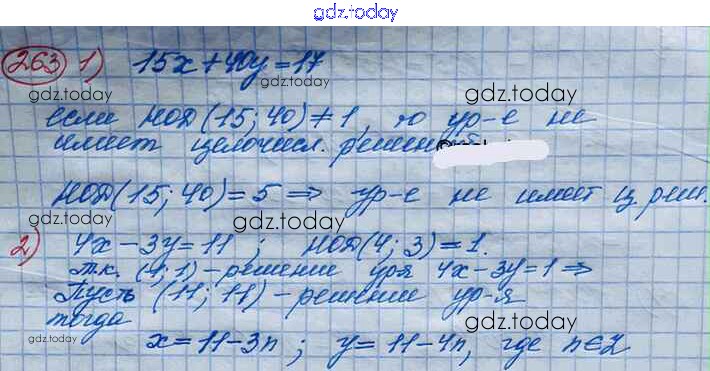 gdz.today
263 1) 15x+40y=17
gdz.today
gdz.today
если НОД(15; 40)≠1, то ур-е не
имеет целочисл. решений
НОД(15; 40)=5 ⇒ ур-е не имеет ц. реш.
gdz.today
gdz.today
2) 4x-3y=11; НОД(4; 3)=1.
т.к. (1; 1)-решение ур-я 4x-3y=1 ⇒
Пусть (11; 11)-решение ур-я
тогда
gdz.today
gdz.today
x=11-3n; y=11-4n, где n∈Z